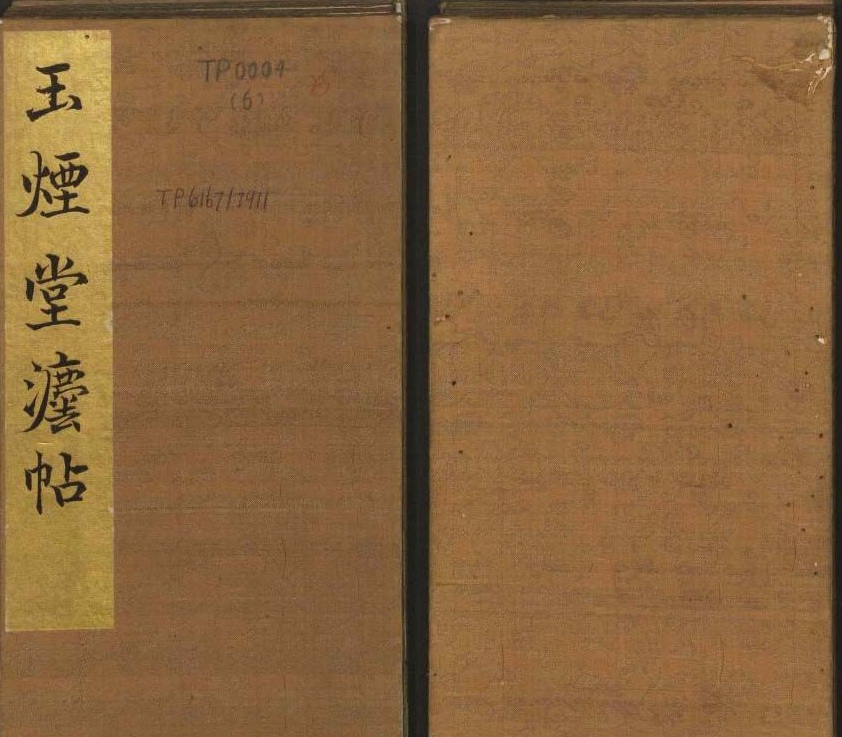 玉煙堂灋帖
TP0004
(6)
TP6167/7911